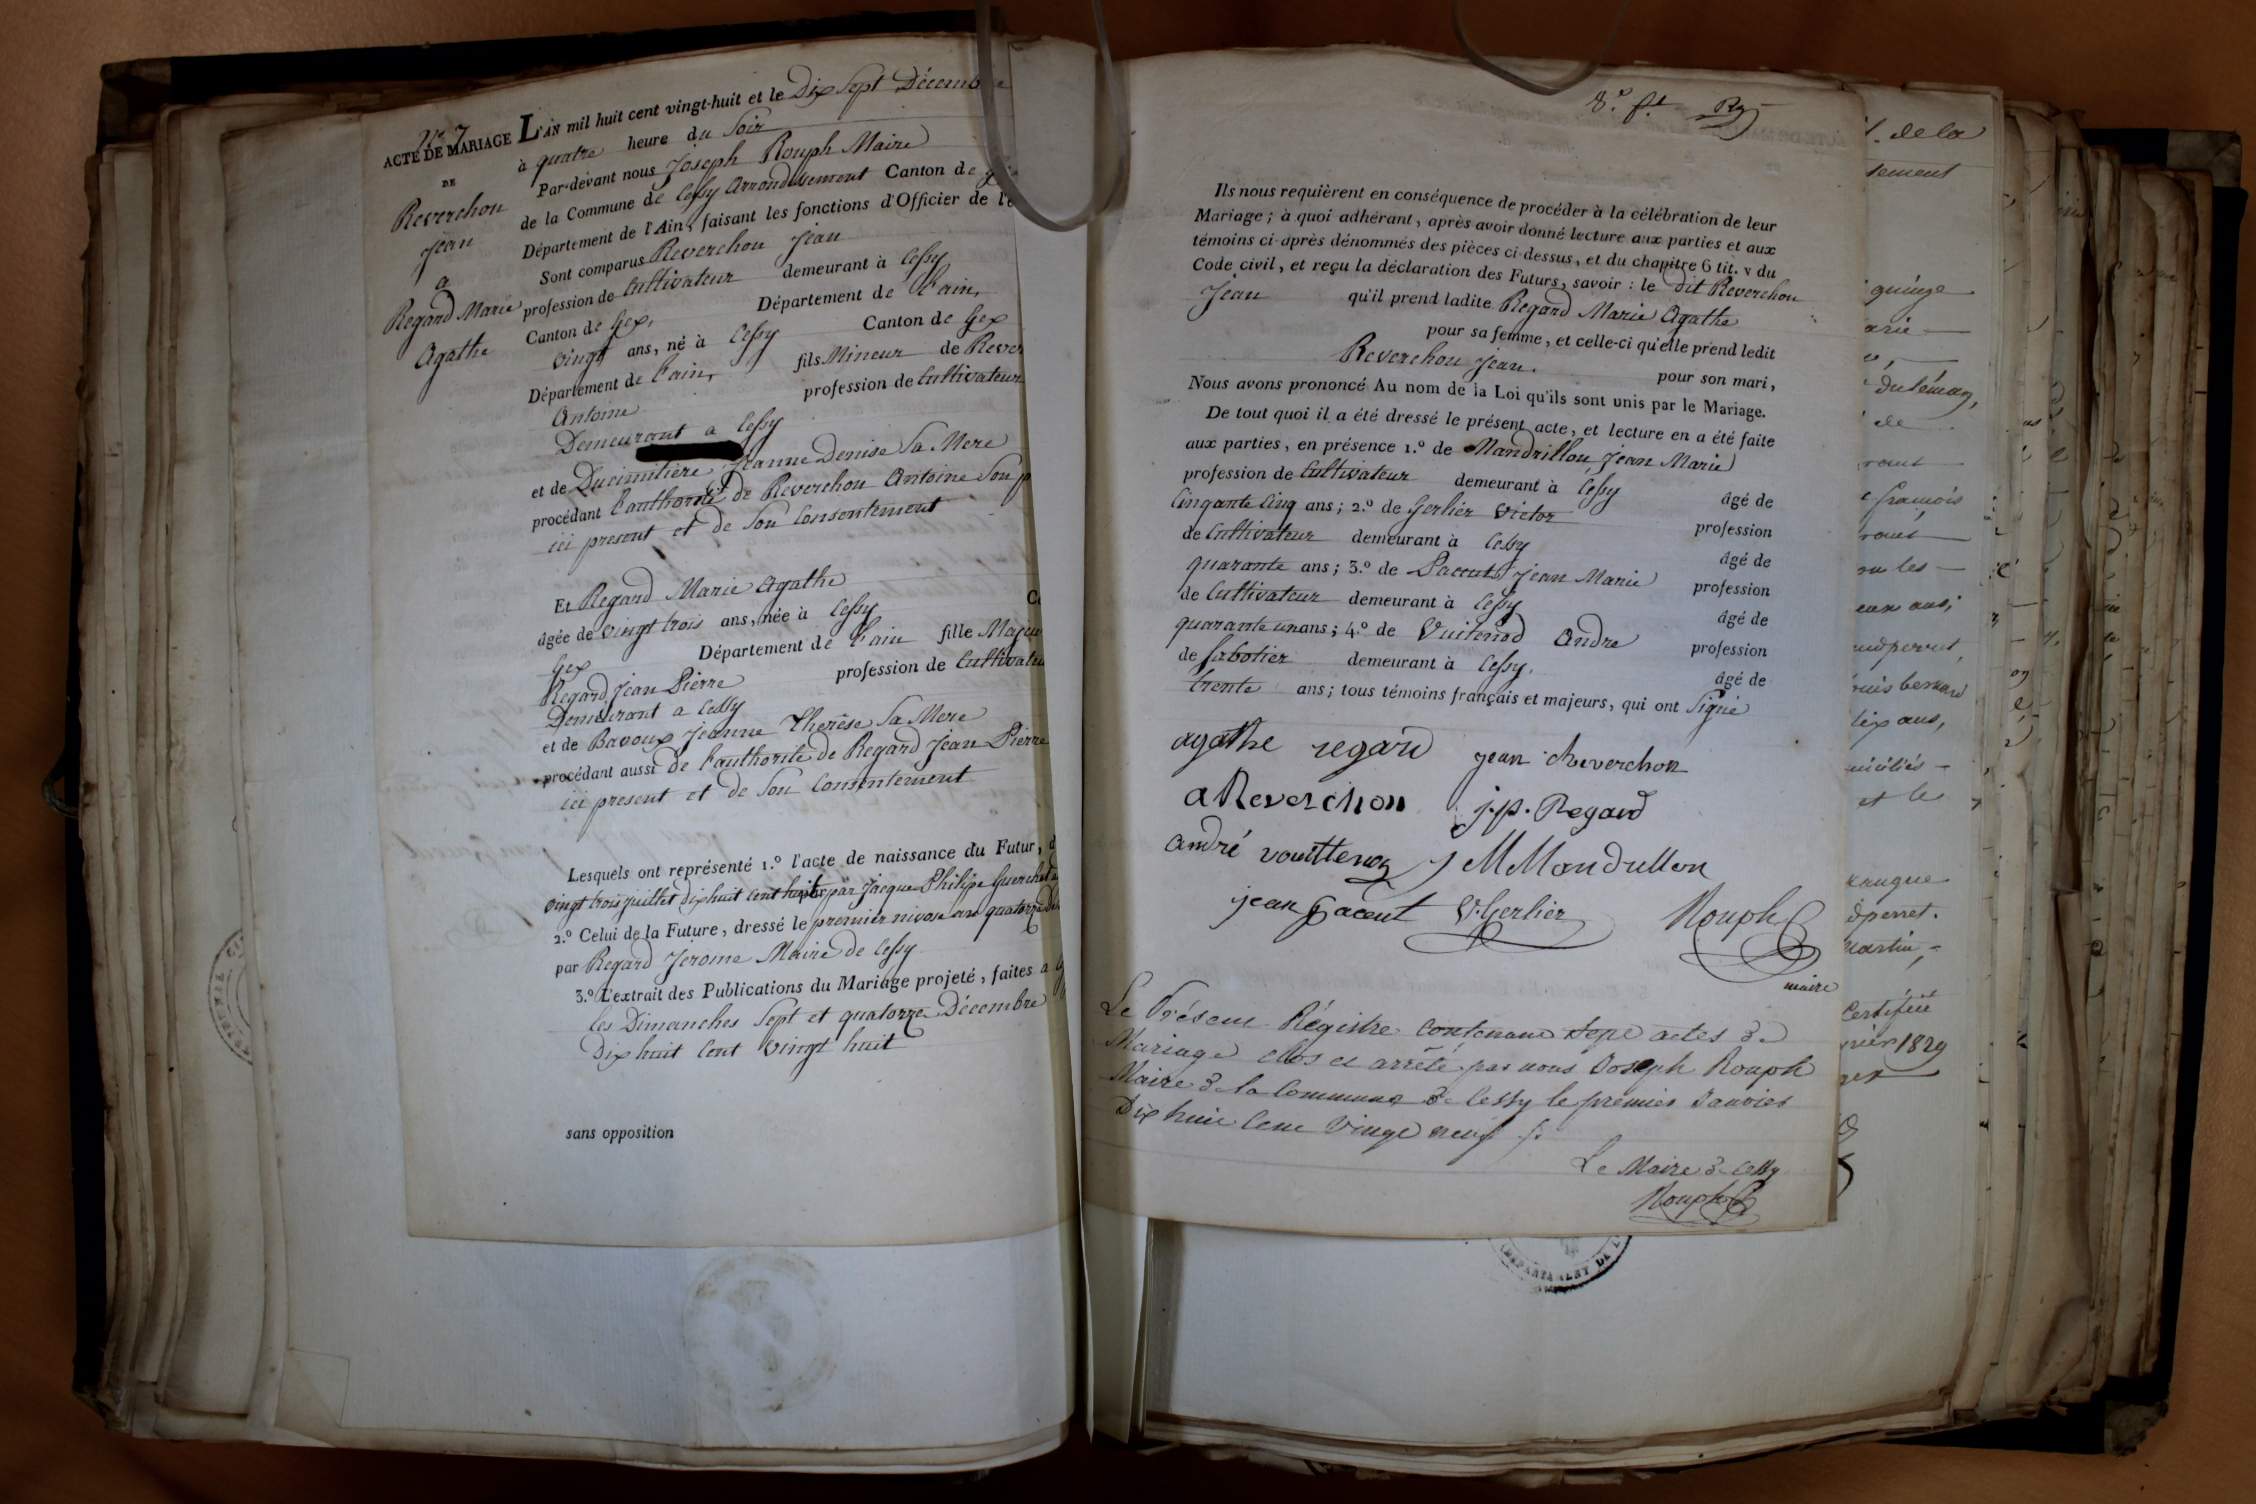 N° 7
ACTE DE MARIAGE
DE
Reverchon
Jean
a
Regard Marie
Agathe
L'AN mil huit cent vingt-huit et le Dix Sept Décembre
à quatre heure du Soir
Par-devant nous Joseph Rouph Maire
de la Commune de Cessy Arrondissement Canton de
Département de l'Ain, faisant les fonctions d'Officier de l'é
Sont comparus Reverchon Jean
profession de Cultivateur demeurant à Cessy
Canton de Gex, Département de l'ain,
vingt ans, né à Cessy Canton de Gex
Département de l'ain, fils Mineur de Rever
Antoine profession de Cultivateur
Demeurant a Cessy
et de Ducimitière Jeanne Denise Sa Mere
procédant l'authorité de Reverchon Antoine Son p
ici present et de Son Consentement
Et Regard Marie Agathe
âgée de vingt trois ans, née à Cessy C
Gex Département de l'ain fille Majeu
Regard Jean Pierre profession de Cultivateu
Demeurant a Cessy
et de Bavoux Jeanne Therèse Sa Mere
procédant aussi de l'authorité de Regard Jean Pierre
ici present et de Son Consentement
Lesquels ont représenté 1.º l'acte de naissance du Futur, d
vingt trois juillet dix huit cent huit par Jacque Philipe
2.º Celui de la Future, dressé le premier nivose an quatorze
par Regard Jerome Maire de Cessy
3.º L'extrait des Publications du Mariage projeté, faites a
les Dimanches Sept et quatorze Décembre
Dix huit Cent vingt huit
sans opposition
8.e f.t
Ils nous requièrent en conséquence de procéder à la célébration de leur
Mariage; à quoi adhérant, après avoir donné lecture aux parties et aux
témoins ci-après dénommés des pièces ci-dessus, et du chapitre 6 tit. v du
Code civil, et reçu la déclaration des Futurs, savoir : le dit Reverchon
Jean qu'il prend ladite Regard Marie Agathe
pour sa femme, et celle-ci qu'elle prend ledit
Reverchon Jean. pour son mari,
Nous avons prononcé Au nom de la Loi qu'ils sont unis par le Mariage.
De tout quoi il a été dressé le présent acte, et lecture en a été faite
aux parties, en présence 1.º de Mandrillon Jean Marie
profession de Cultivateur demeurant à Cessy âgé de
Cinqante Cinq ans; 2.º de Gerlier Victor profession
de Cultivateur demeurant à Cessy âgé de
quarante ans; 3.º de Paccut Jean Marie profession
de Cultivateur demeurant à Cessy âgé de
quarante un ans; 4.º de Vuitenod Andre profession
de Sabotier demeurant à Cessy, âgé de
trente ans; tous témoins français et majeurs, qui ont Signé
agathe regard jean Reverchon
a Reverchon j.p. Regard
andré vouittenoz J M Mandrillon
jean paccut V. Gerlier Rouph
maire
Le Présent Régistre contenant Sept actes de
Mariage clos et arrêté par nous Joseph Rouph
Maire de la Commune de Cessy le premier Janvier
Dix huit Cent Vingt neuf
Le Maire de Cessy
Rouph
de la
quinze
arie
Du Léman,
de
françois
les
ans;
et le
perret.
martin,
Certifiée
1829
DÉPARTEMENT DE L'